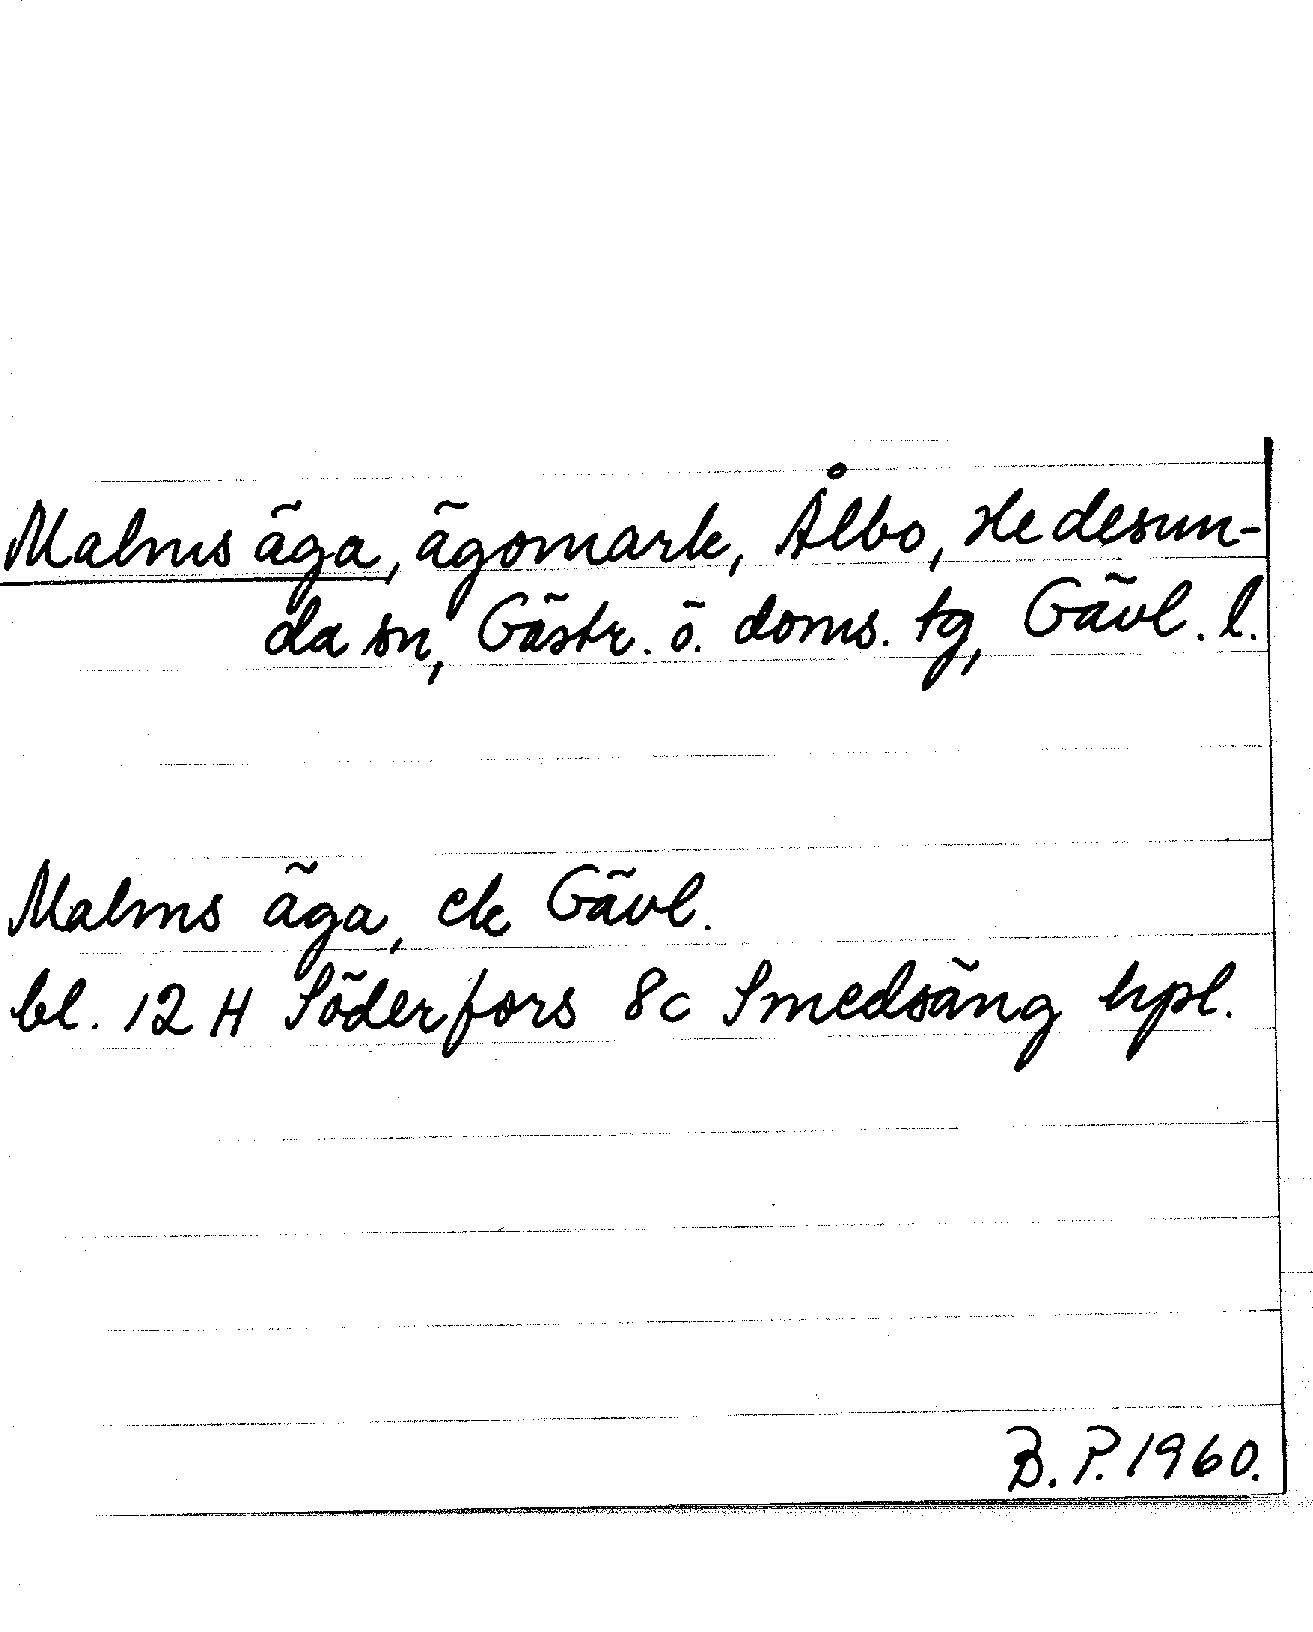 Malms äga, ägomark, Ålbo, Hedesun-
da sn, Gästr. ö. doms. tg, Gävl. l.
Malms äga, ek Gävl.
bl. 12 H Söderfors 8c Smedsäng hpl.
B.P. 1960.